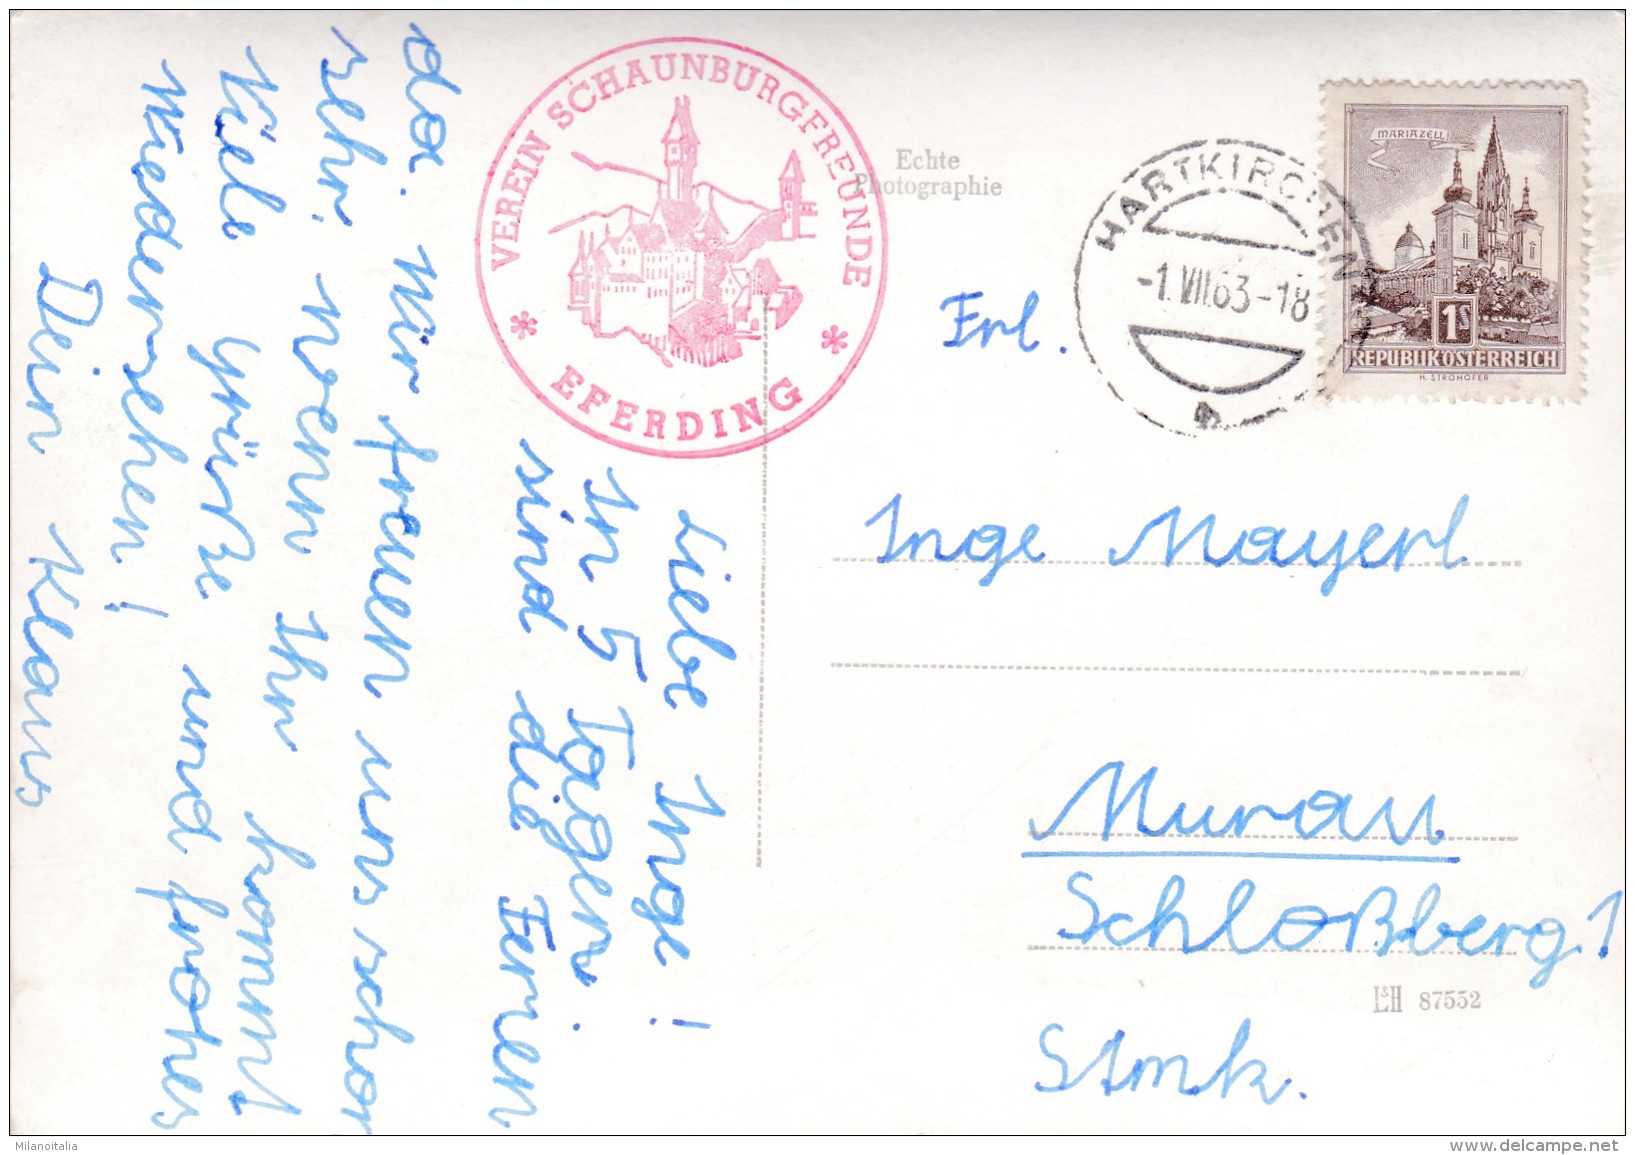 Liebe Inge!
In 5 Tagen
sind die Ferien
da. Wir freuen uns schon
sehr, wenn Ihr kommt
Viele Grüße und frohes
Wiedersehen!
Dein Klaus
VEREIN SCHAUNBURGFREUNDE
* EFERDING *
Echte
Photographie
HARTKIRCHEN
-1.VII.63-18
MARIAZELL
1S
REPUBLIK ÖSTERREICH
H. STROHOFER
Frl.
Inge Mayerl
Murau
Schloßberg 1
Stmk.
L&H 87552
Milanoitalia
delcampe.net